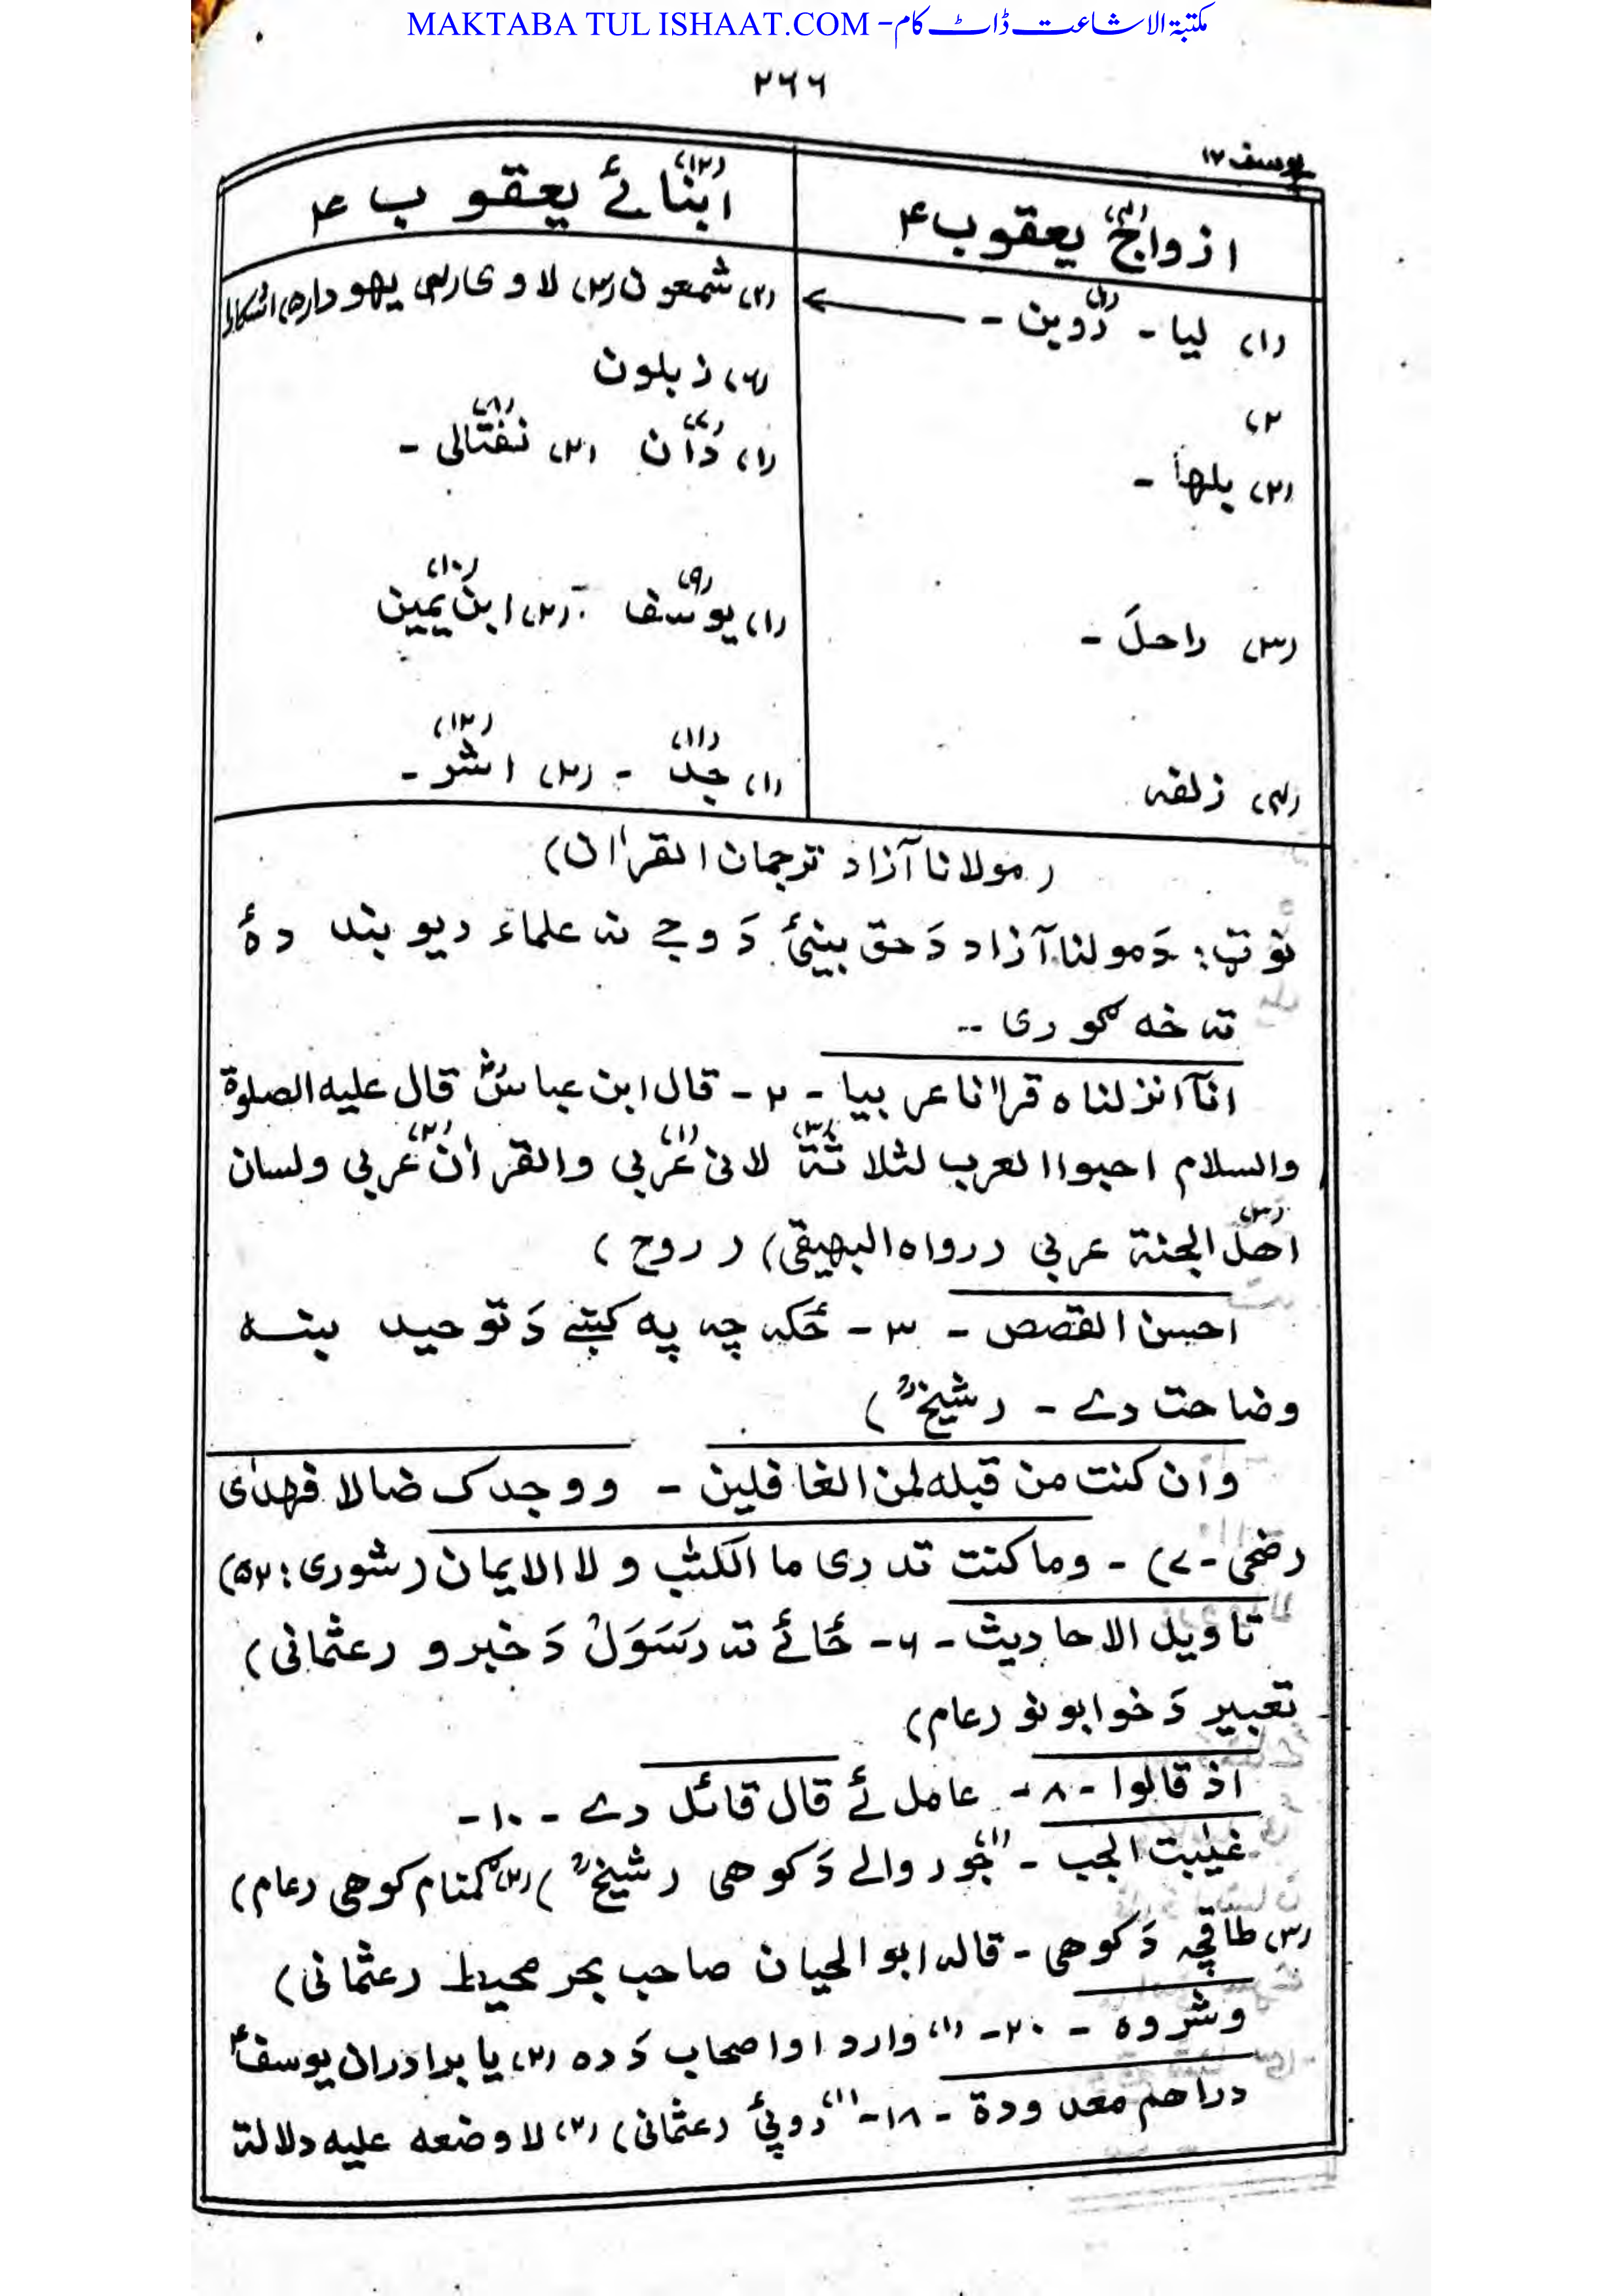 MAKTABA TUL ISHAAT.COM - مکتبۃ الاشاعت ڈاٹ کام
۲۶۶
یوسف ۱۲
ازواج (۴) یعقوب ع
ابنائے (۱۲) یعقوب ع
(۱) لیا - (۱) روبن -
(۲) شمعون (۳) لاوی (۴) یهودا (۵) اشکار
(۶) زبلون
۲)
(۲) بلها -
(۱) دان (۷) (۲) نفتالی (۸) -
(۳) راحل -
(۱) یوسف (۹) (۲) ابن یمین (۱۰)
(۴) زلفہ
(۱) جد (۱۱) - (۲) اشر (۱۲) -
(مولانا آزاد ترجمان القرآن)
نوټ: دَ مولنا آزاد دَ حق بینیٔ دَ وجے نہ علماء دیوبند دۀ
تہ خہ ګوری --
انآ انزلناه قرانا عربیا - ۲ - قال ابن عباسؓ قال علیه الصلوة
والسلام احبوا العرب لثلاثة (۳) لانی (۱) عربی والقرآن (۲) عربی ولسان
(۳) اهل الجنة عربی (رواه البهیقی) (روح)
احسن القصص - ۳ - ځکہ چہ پہ کښے دَ توحید ښہ
وضاحت دے - (شیخؒ)
وان کنت من قبله لمن الغافلین - ووجدک ضالا فهدٰی
(ضحی - ۷) - وما کنت تدری ما الکتٰب ولا الایمان (شوری: ۵۲)
تاویل الاحادیث - ۶ - ځائے تہ رسَوَلْ دَ خبرو (عثمانی)
تعبیر دَ خوابونو (عام)
اذ قالوا - ۸ - عامل ئے قال قائل دے - ۱۰ -
غیٰبت الجب - (۱) جوړ والے دَ کوهی (شیخؒ) (۲) ګمنام کوهی (عام)
(۳) طاقچہ دَ کوهی - قالہ ابوالحیان صاحب بحر محیط (عثمانی)
وشروه - ۲۰ - (۱) وارد او اصحاب دَ ده (۲) یا برادران یوسف ع
دراهم معدودة - ۱۸ - (۱) روپیٔ (عثمانی) (۲) لا وضعه علیه دلالة